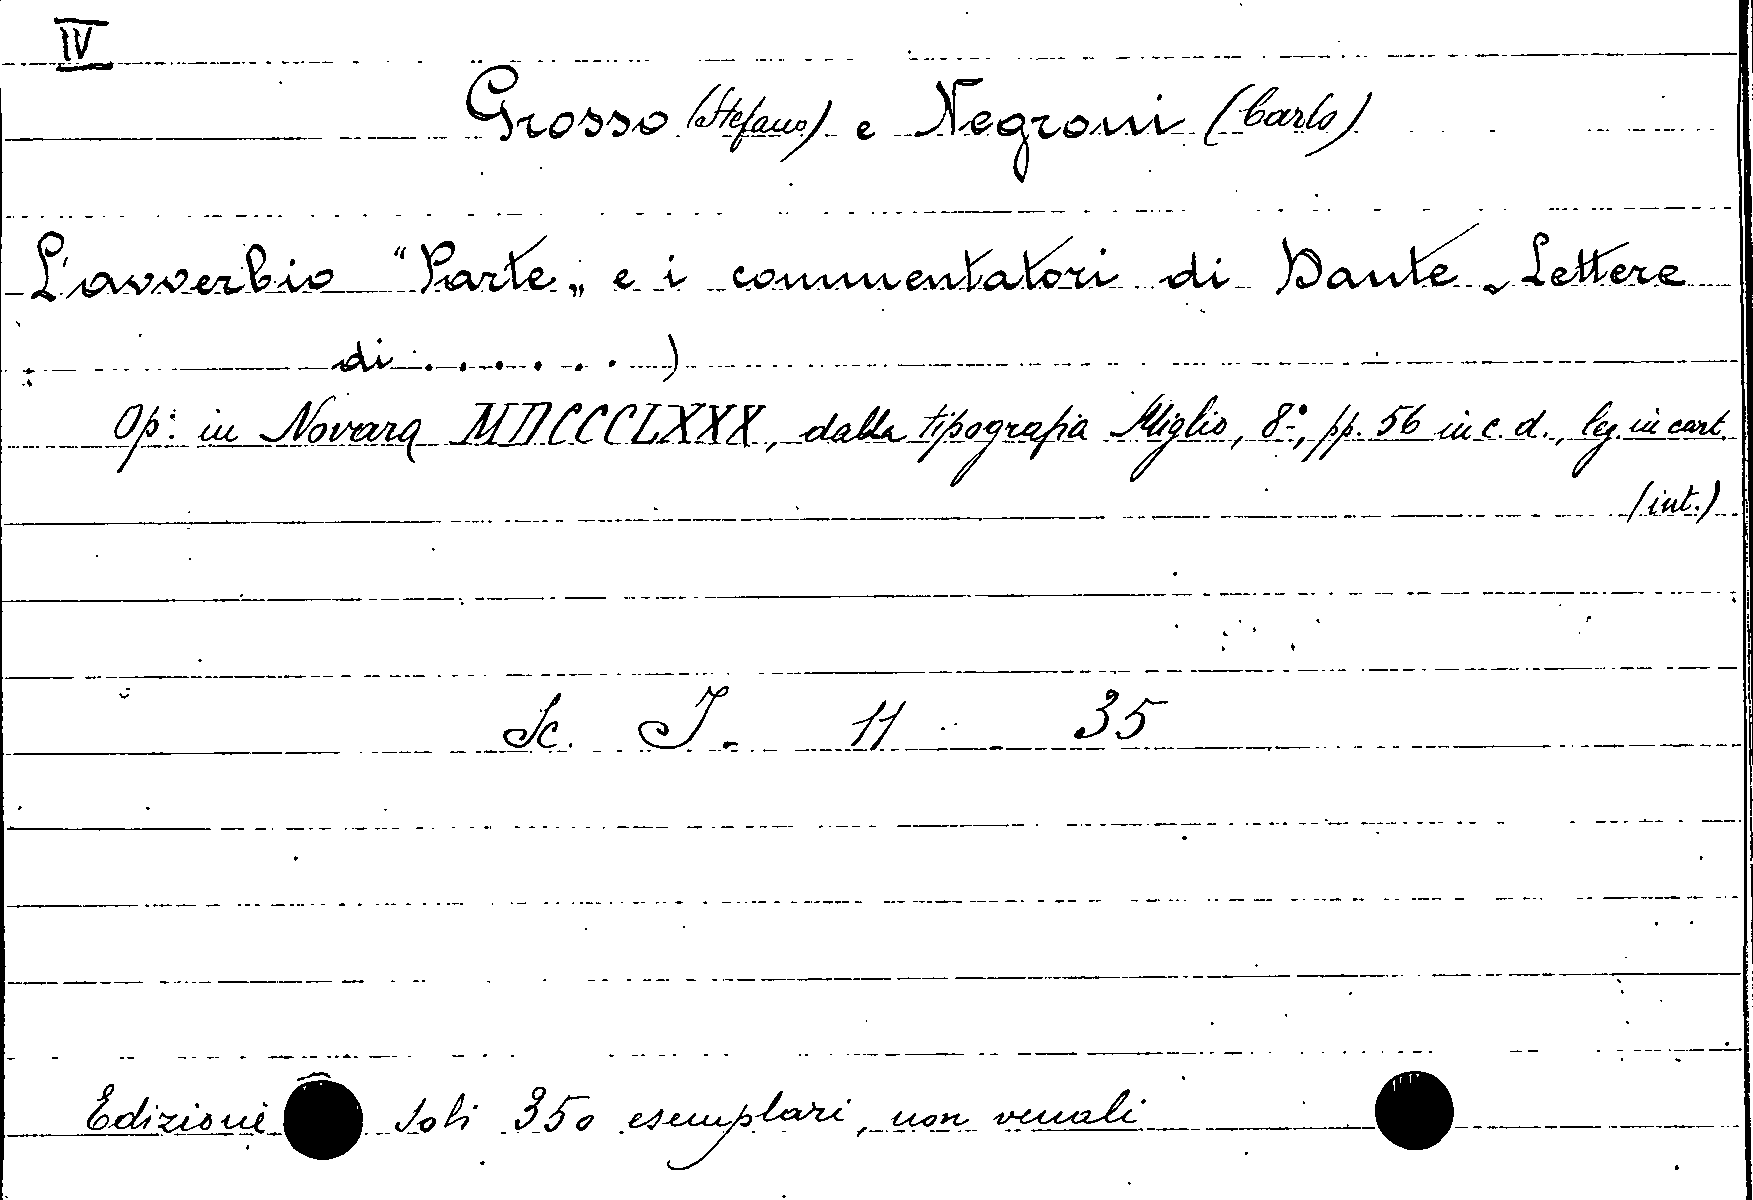 IV
Grosso (Stefano) e Negroni (Carlo)
L'avverbio "Parte„ e i commentatori di Dante. Lettere
di . . . . . . )
Op: in Novara MDCCCLXXX, dalla tipografia Miglio, 8°, pp. 56 in c. d., leg. in cart.
(int.)
Sc. I. 11 35
Edizione soli 350 esemplari, non venali